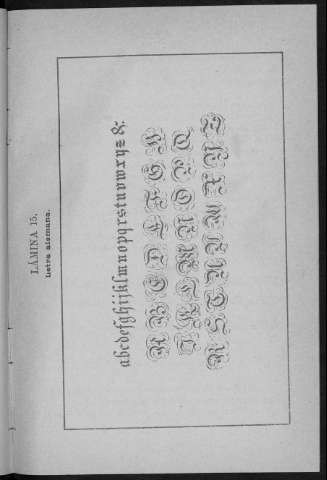 LÁMINA 15.
Letra alemana.
abcdefghijklmnopqrstuvwxyz &.
A B C D E F G H
I K L M N O P Q
R S T U V W X Y Z